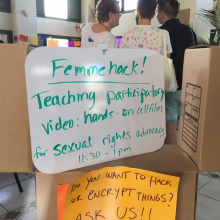 Femmehack!
Teaching participatory
Video: hands-on cellfilm
for sexual rights advocacy
11:30 - 1pm
DO YOU WANT TO HACK
OR ENCRYPT THINGS?
ASK US!!